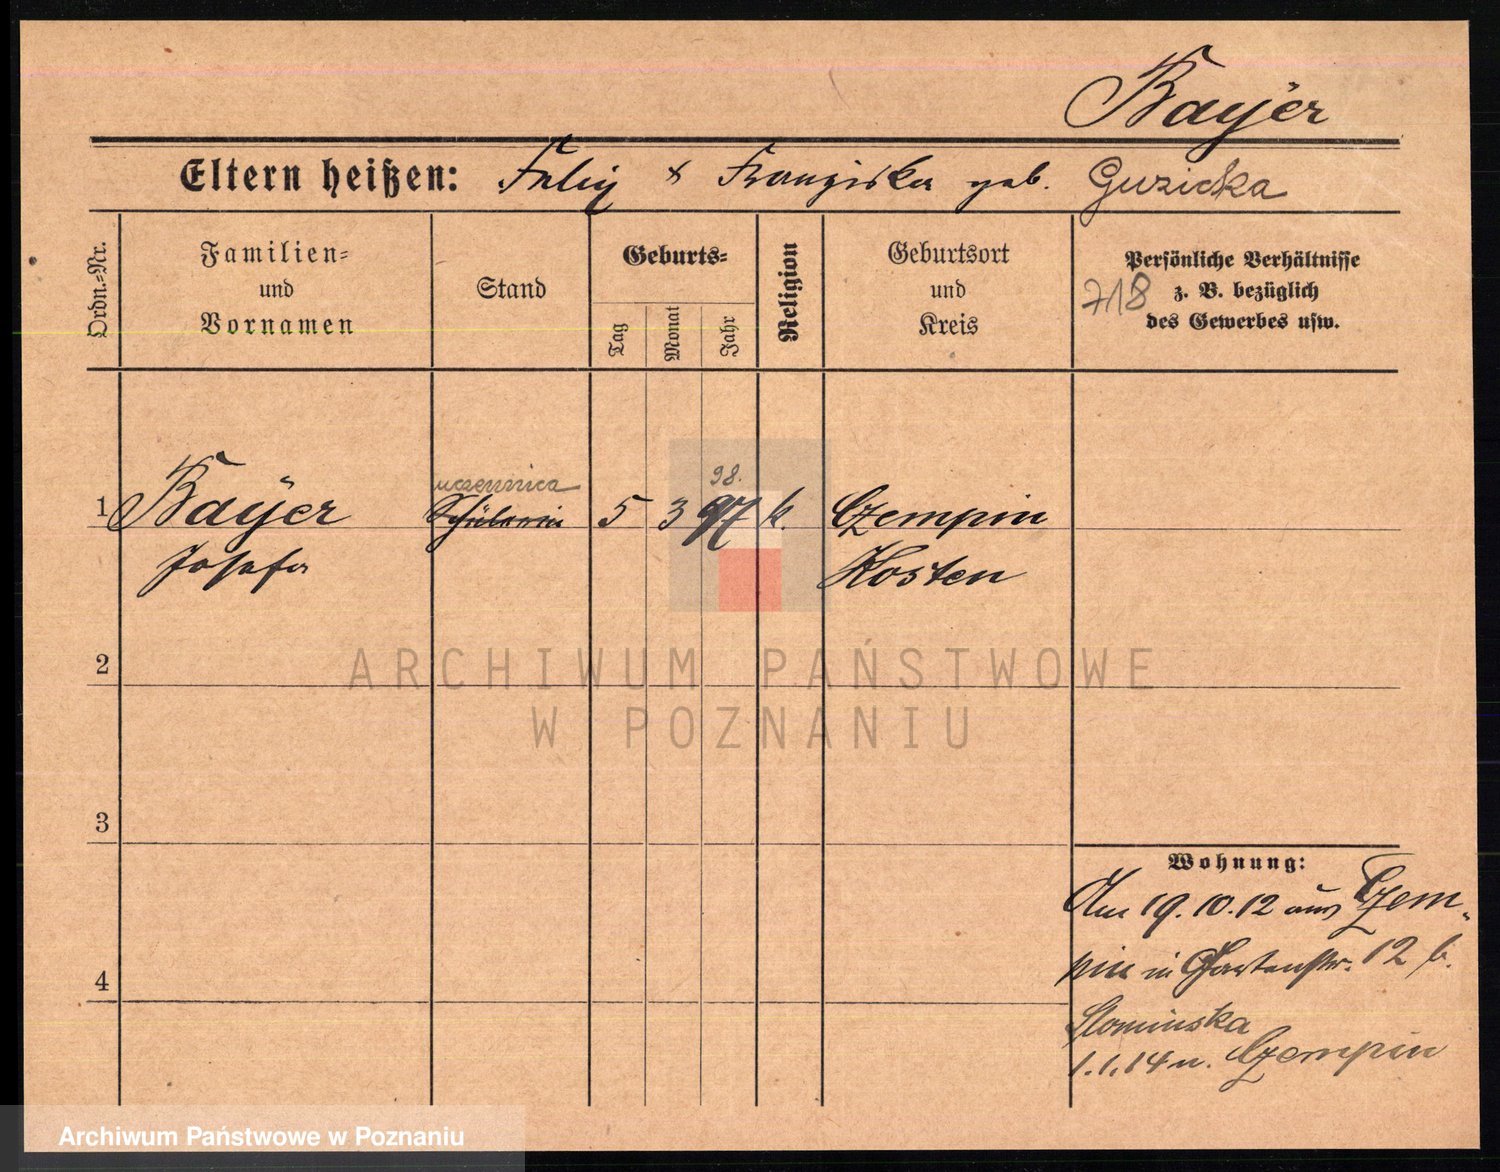 Bayer
Eltern heißen: Felix & Franziska geb. Guzicka
Ordn.-Nr.
Familien-
und
Vornamen
Stand
Geburts-
Tag
Monat
Jahr
Religion
Geburtsort
und
Kreis
Persönliche Verhältnisse
z. B. bezüglich
des Gewerbes usw.
718
uczennica
98.
1 Bayer Schülerin 5 3 97 k. Czempin
Josefa Kosten
2
3
4
Wohnung:
Am 19.10.12 aus Czem-
pin in Gartenstr. 12 b.
Slominska
1.1.14 n. Czempin
ARCHIWUM PAŃSTWOWE
W POZNANIU
Archiwum Państwowe w Poznaniu